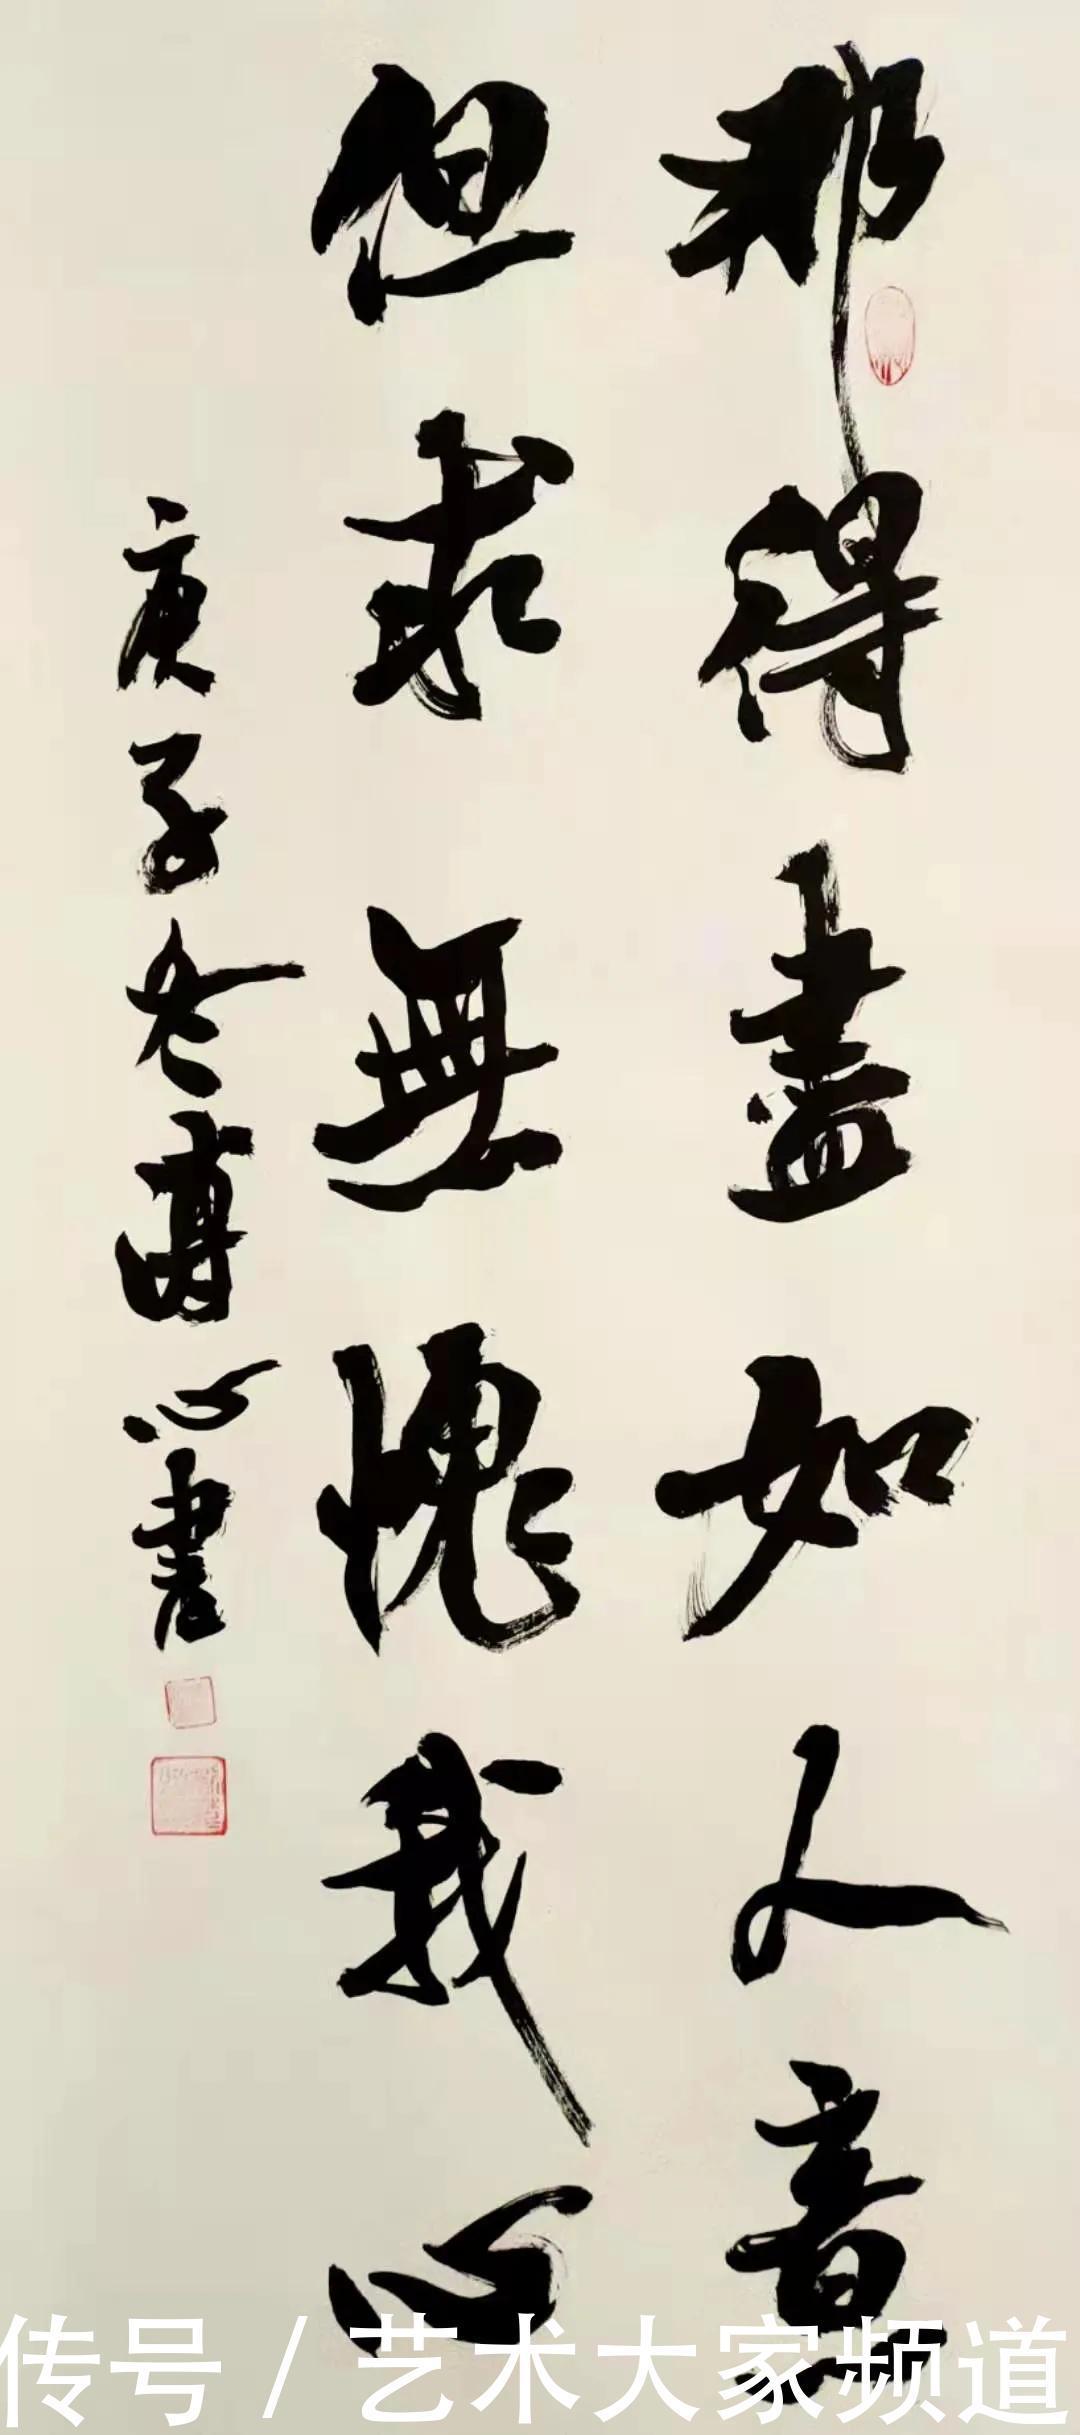 那得盡如人意
但求無愧我心
庚子冬心書
传号 / 艺术大家频道